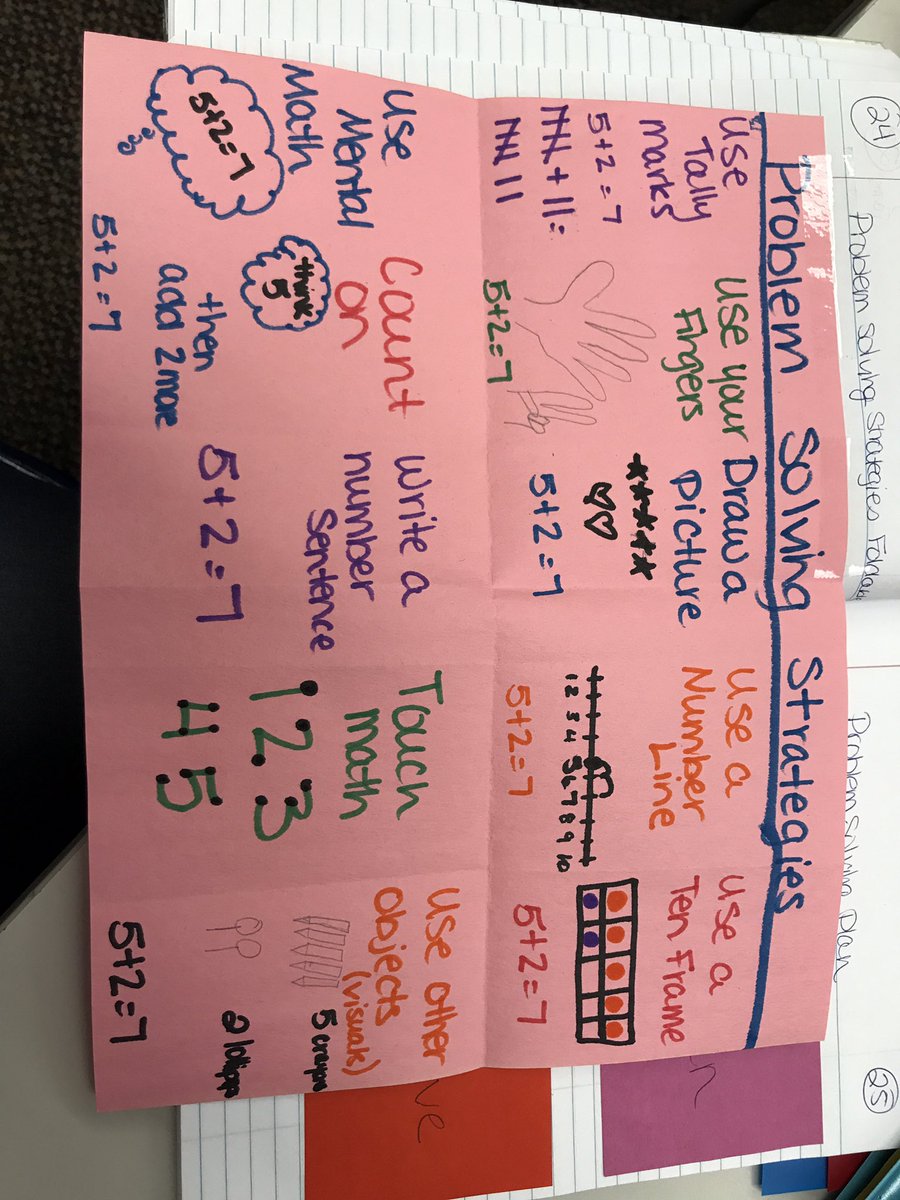 24
Problem Solving Strategies
Problem Solving Plan
25
Problem Solving Strategies
Use
Tally
marks
5+2=7
+ 11=
11
Use your
Fingers
5+2=7
Draw a
Picture
5+2=7
Use a
Number
Line
1 2 3 4 5 6 7 8 9 10
5+2=7
Use a
Ten Frame
5+2=7
Use
Mental
Math
5+2=7
Count
on
think
5
then
add 2 more
5+2=7
Write a
number
Sentence
5+2=7
Touch
math
1 2 3
4 5
Use other
objects
(visuals)
5 crayons
2 lollipops
5+2=7